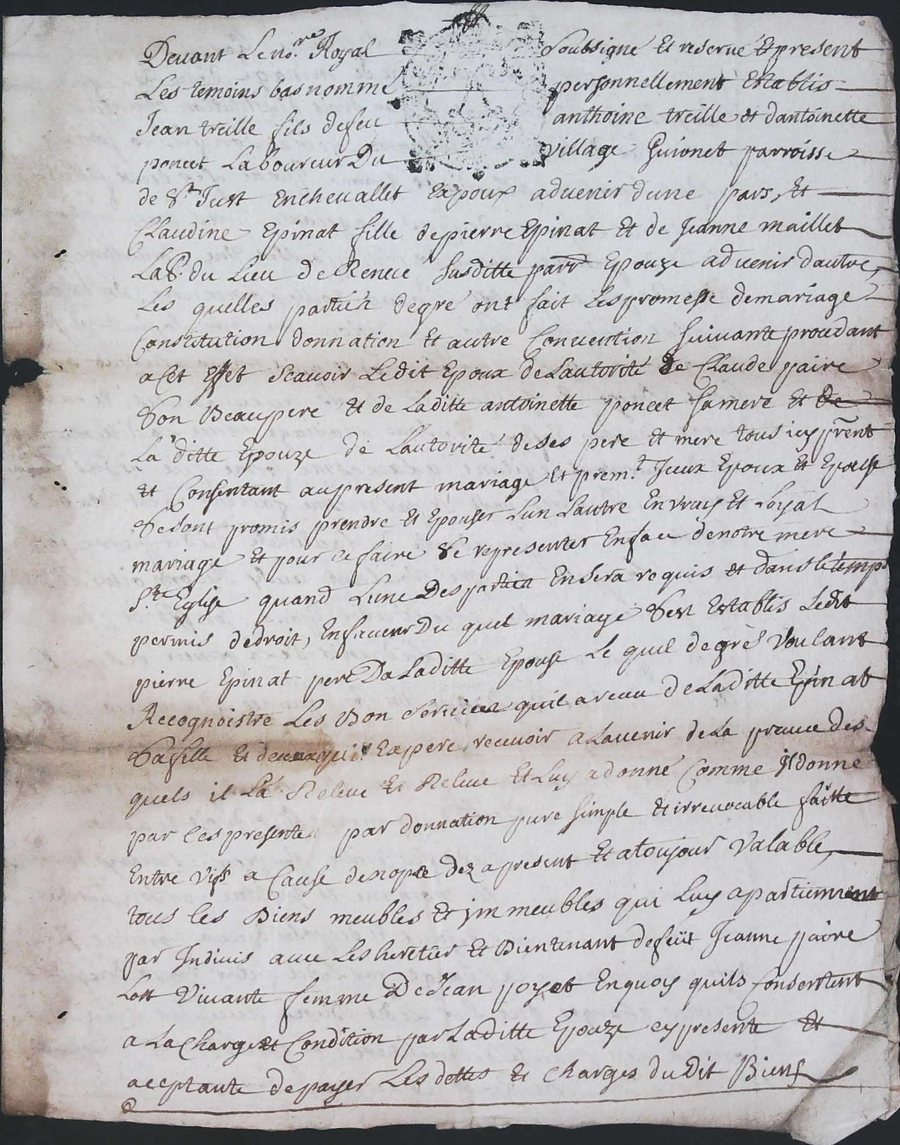 Devant Le no.re Royal Soubsigné et reservé et present
Les temoins bas nomme personnellement Etablis
Jean treille fils defeu anthoine treille et dantoinette
poncet Laboureur Du village Guionet parroisse
de St Just Enchevallet Expoux advenir dune part, Et
Claudine Epinat fille depierre Epinat et de Jeanne maillet
Lab.r du Lieu de susditte parr Epouze advenir dautre,
Les quelles partiéz degré ont fait Les promesse demariage
Constitution donnation et autre Convention suivante
acet Effet scavoir Ledit Epoux de Lautorité de Claude paire
son Beaupere et de Laditte antoinette poncet sa mere et de
La ditte Epouze de Lautorité deses pere et mere tous icy prēnt
et Consentant aupresent mariage et prem.t Iceux Epoux et Epouse
se sont promis prendre et Epouser Lun Lautre En vray et Loyal
mariage et pour ce faire se representer Enface denotre mere
S.te Eglise quand Lune Des partiéz Ensera requis et dans le temps
permis dedroit, Enfaveur Du quel mariage sest Establis Ledit
pierre Epinat pere Da Laditte Epouse Le quel degrés voulant
Recognoistre Les Bon services quil areceu de Laditte Epinat
sa fille et Expere recevoir alavenir de La preuve des
quels il La Releve et Releve Et Luy adonné Comme il donne
par Ces presente par donnation pure simple et irrevocable faitte
Entre vifs a Cause denopce dez apresent et atoujour valable,
tous les Biens meubles et immeubles qui Luy apartiennent
par Indivis avec Les heretier et Bientenant defeüe Jeanne paire
Lors vivante femme De Jean poyet Enquoy quils Consentent
a La Charge et Condition par Laditte Epouze cy presente et
aceptante depayer Les dettes et Charges du Dit Biens